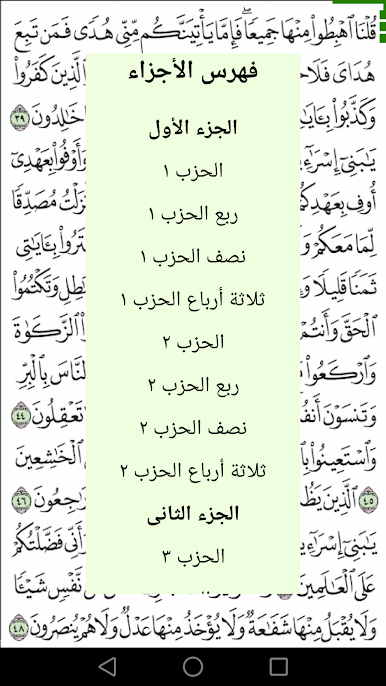 قُلْنَا ٱهْبِطُوا۟ مِنْهَا جَمِيعًا ۖ فَإِمَّا يَأْتِيَنَّكُم مِّنِّى هُدًى فَمَن تَبِعَ
هُدَاىَ ٱلَّذِينَ كَفَرُوا۟
وَكَذَّبُوا۟ ٣٩
يَٰبَنِىٓ وَأَوْفُوا۟ بِعَهْدِىٓ
أُوفِ مُصَدِّقًا
لِّمَا مَعَكُمْ بِـَٔايَٰتِى
ثَمَنًا قَلِيلًا وَتَكْتُمُوا۟
ٱلْحَقَّ وَأَنتُمْ ٱلزَّكَوٰةَ
وَٱرْكَعُوا۟ ٱلنَّاسَ بِٱلْبِرِّ
وَتَنسَوْنَ تَعْقِلُونَ ٤٤
وَٱسْتَعِينُوا۟ ٱلْخَٰشِعِينَ
٤٥ ٱلَّذِينَ ٤٦
يَٰبَنِىٓ وَأَنِّى فَضَّلْتُكُمْ
عَلَى ٱلْعَٰلَمِينَ نَّفْسٍ شَيْـًٔا
وَلَا يُقْبَلُ مِنْهَا شَفَٰعَةٌ وَلَا يُؤْخَذُ مِنْهَا عَدْلٌ وَلَا هُمْ يُنصَرُونَ ٤٨
فهرس الأجزاء
الجزء الأول
الحزب ١
ربع الحزب ١
نصف الحزب ١
ثلاثة أرباع الحزب ١
الحزب ٢
ربع الحزب ٢
نصف الحزب ٢
ثلاثة أرباع الحزب ٢
الجزء الثانى
الحزب ٣